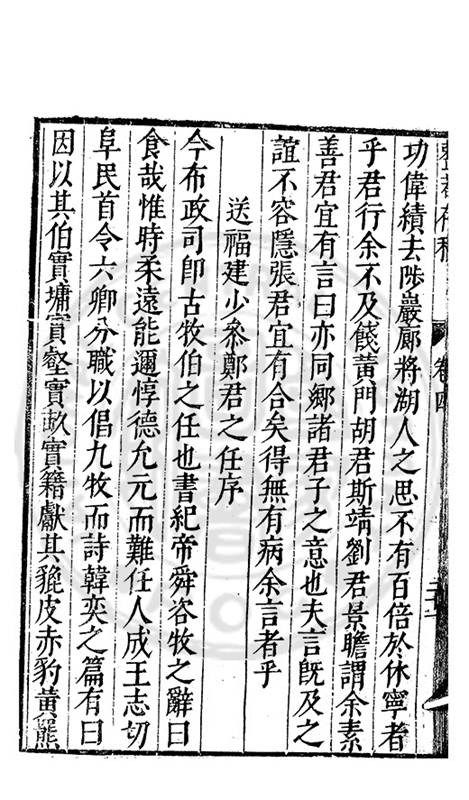 功偉績去陟巖廊將湖人之思不有百倍於休寧者
乎君行余不及餞黃門胡君斯靖劉君景瞻謂余素
善君宜有言曰亦同鄉諸君子之意也夫言旣及之
誼不容隱張君宜有合矣得無有病余言者乎
送福建少參鄭君之任序
今布政司即古牧伯之任也書紀帝舜咨牧之辭曰
食哉惟時柔遠能邇惇德允元而難任人成王志切
阜民首令六卿分職以倡九牧而詩韓奕之篇有曰
因以其伯實墉實壑實畝實籍獻其貔皮赤豹黃羆
卷四